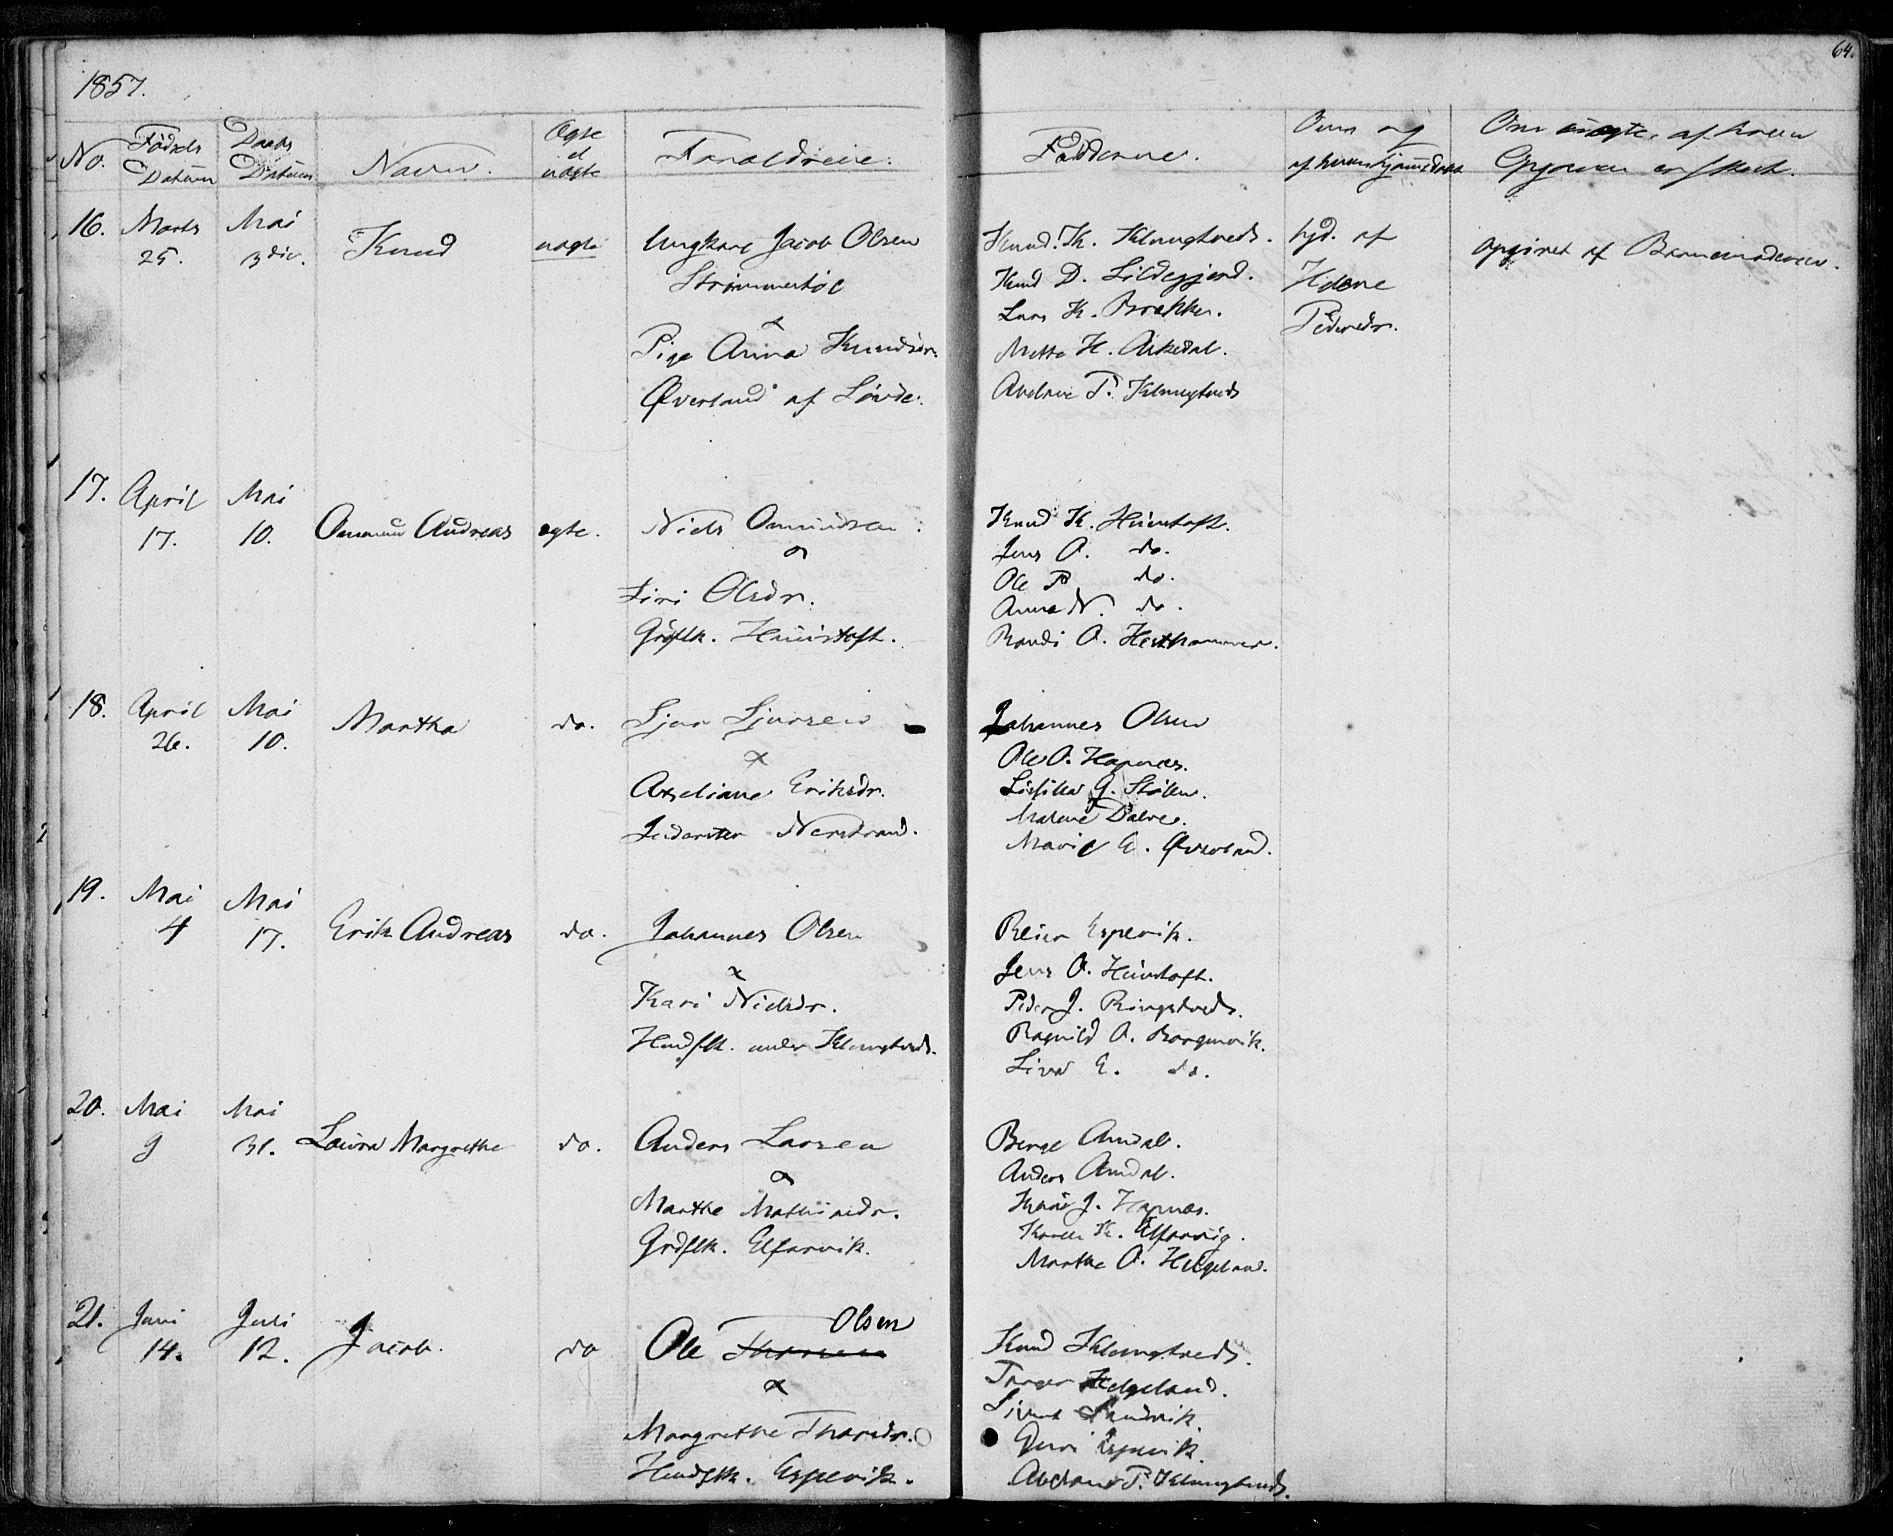 1857.
64.
No. Fødsels Datum Daabs Datum Navn. Ægte el uægte Forældrene. Fadderne. Om og af hvem hjemmedøbt Om uægte, af hvem Opgiven er skeet.
16. Marts 25. Mai 3die. Knud uægte
Ungkarl Jacob Olsen
Strømmestøl
&
Pige Anna Knudsdr.
Øverland af Søvde.
Knud K. Klungtvedt.
Knud D. Lildegjerd.
Lars K. Brække.
Mette H. Aikedal.
Andrine P. Klungtvedt
hjd. af
Helene
Pedersdr.
opgivet af Barnemoderen.
17. April 17. Mai 10. Ommund Andreas ægte.
Niels Omundsen
&
Siri Olsdr.
Grdflk. Hiimstoft.
Knud K. Hiimtoft.
Jens A. do.
Ole P. do.
Anna N. do.
Randi O. Hesthammer.
18. April 26. Mai 10. Martha do.
Sjur Sjursen
&
Axeliane Eriksdr.
Inderster Nerstrand.
Johannes Olsen
Ole O. Hapnes.
G. Stølen.
Malene Dalve.
Mari E. Øverland.
19. Mai 4 Mai 17. Erik Andreas do.
Johannes Olsen
&
Kari Nielsdr.
Huusflk. under Klungtvedt.
Reier Espevik.
Jens A. Hiimtoft.
Peder J. Ringstvedt.
Ragnild O. Borgenvik.
Siva E. do.
20. Mai 9 Mai 31. Laura Margrethe do.
Anders Larsen
&
Marthe Mathiasdr.
Grdflk. Elfarvik.
Berge Amdal.
Anders Amdal.
Kari J. Hapnes.
K. Elfarvig.
Marthe O. Helgeland.
21. Juni 14. Juli 12. Jacob. do
Ole Thorsen Olsen
&
Margrethe Thorsdr.
Huusflk. Espevik.
Knud Klungtvedt.
Torger Helgeland.
Sivert Sandvik.
Guri Espevik.
Andrine P. Klungtvedt.